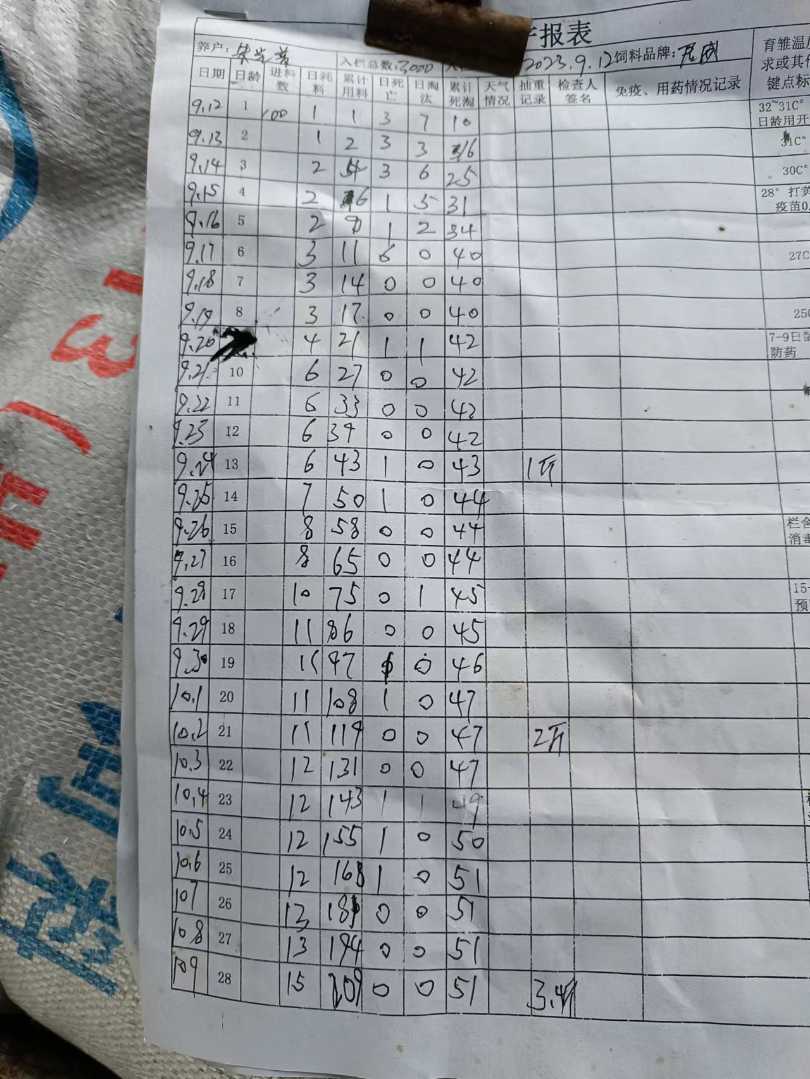 报表
养户: 入栏总数:3000 2023.9.12 饲料品牌: 育雏温度
求或其他
键点标
日期 日龄 进料数 日耗料 累计用料 日死亡 日淘汰 累计死淘 天气情况 抽重记录 检查人签名 免疫、用药情况记录
9.12 1 100 1 1 3 7 10 32~31C°
日龄用开
9.13 2 1 2 3 3 16 31C°
9.14 3 2 4 3 6 25 30C°
9.15 4 2 6 1 5 31 28° 打黄
疫苗0.
9.16 5 2 8 1 2 34
9.17 6 3 11 6 0 40 27C
9.18 7 3 14 0 0 40
9.19 8 3 17 0 0 40 25
9.20 4 21 1 1 42 7-9日
防药
9.21 10 6 27 0 0 42
9.22 11 6 33 0 0 42
9.23 12 6 39 0 0 42
9.24 13 6 43 1 0 43 1斤
9.25 14 7 50 1 0 44
9.26 15 8 58 0 0 44 栏舍
消毒
9.27 16 8 65 0 0 44
9.28 17 10 75 0 1 45 15-
预
9.29 18 11 86 0 0 45
9.30 19 11 97 1 0 46
10.1 20 11 108 1 0 47
10.2 21 11 119 0 0 47 2斤
10.3 22 12 131 0 0 47
10.4 23 12 143 1 1 49
10.5 24 12 155 1 0 50
10.6 25 12 168 1 0 51
107 26 13 181 0 0 51
108 27 13 194 0 0 51
109 28 15 209 0 0 51 3.4斤